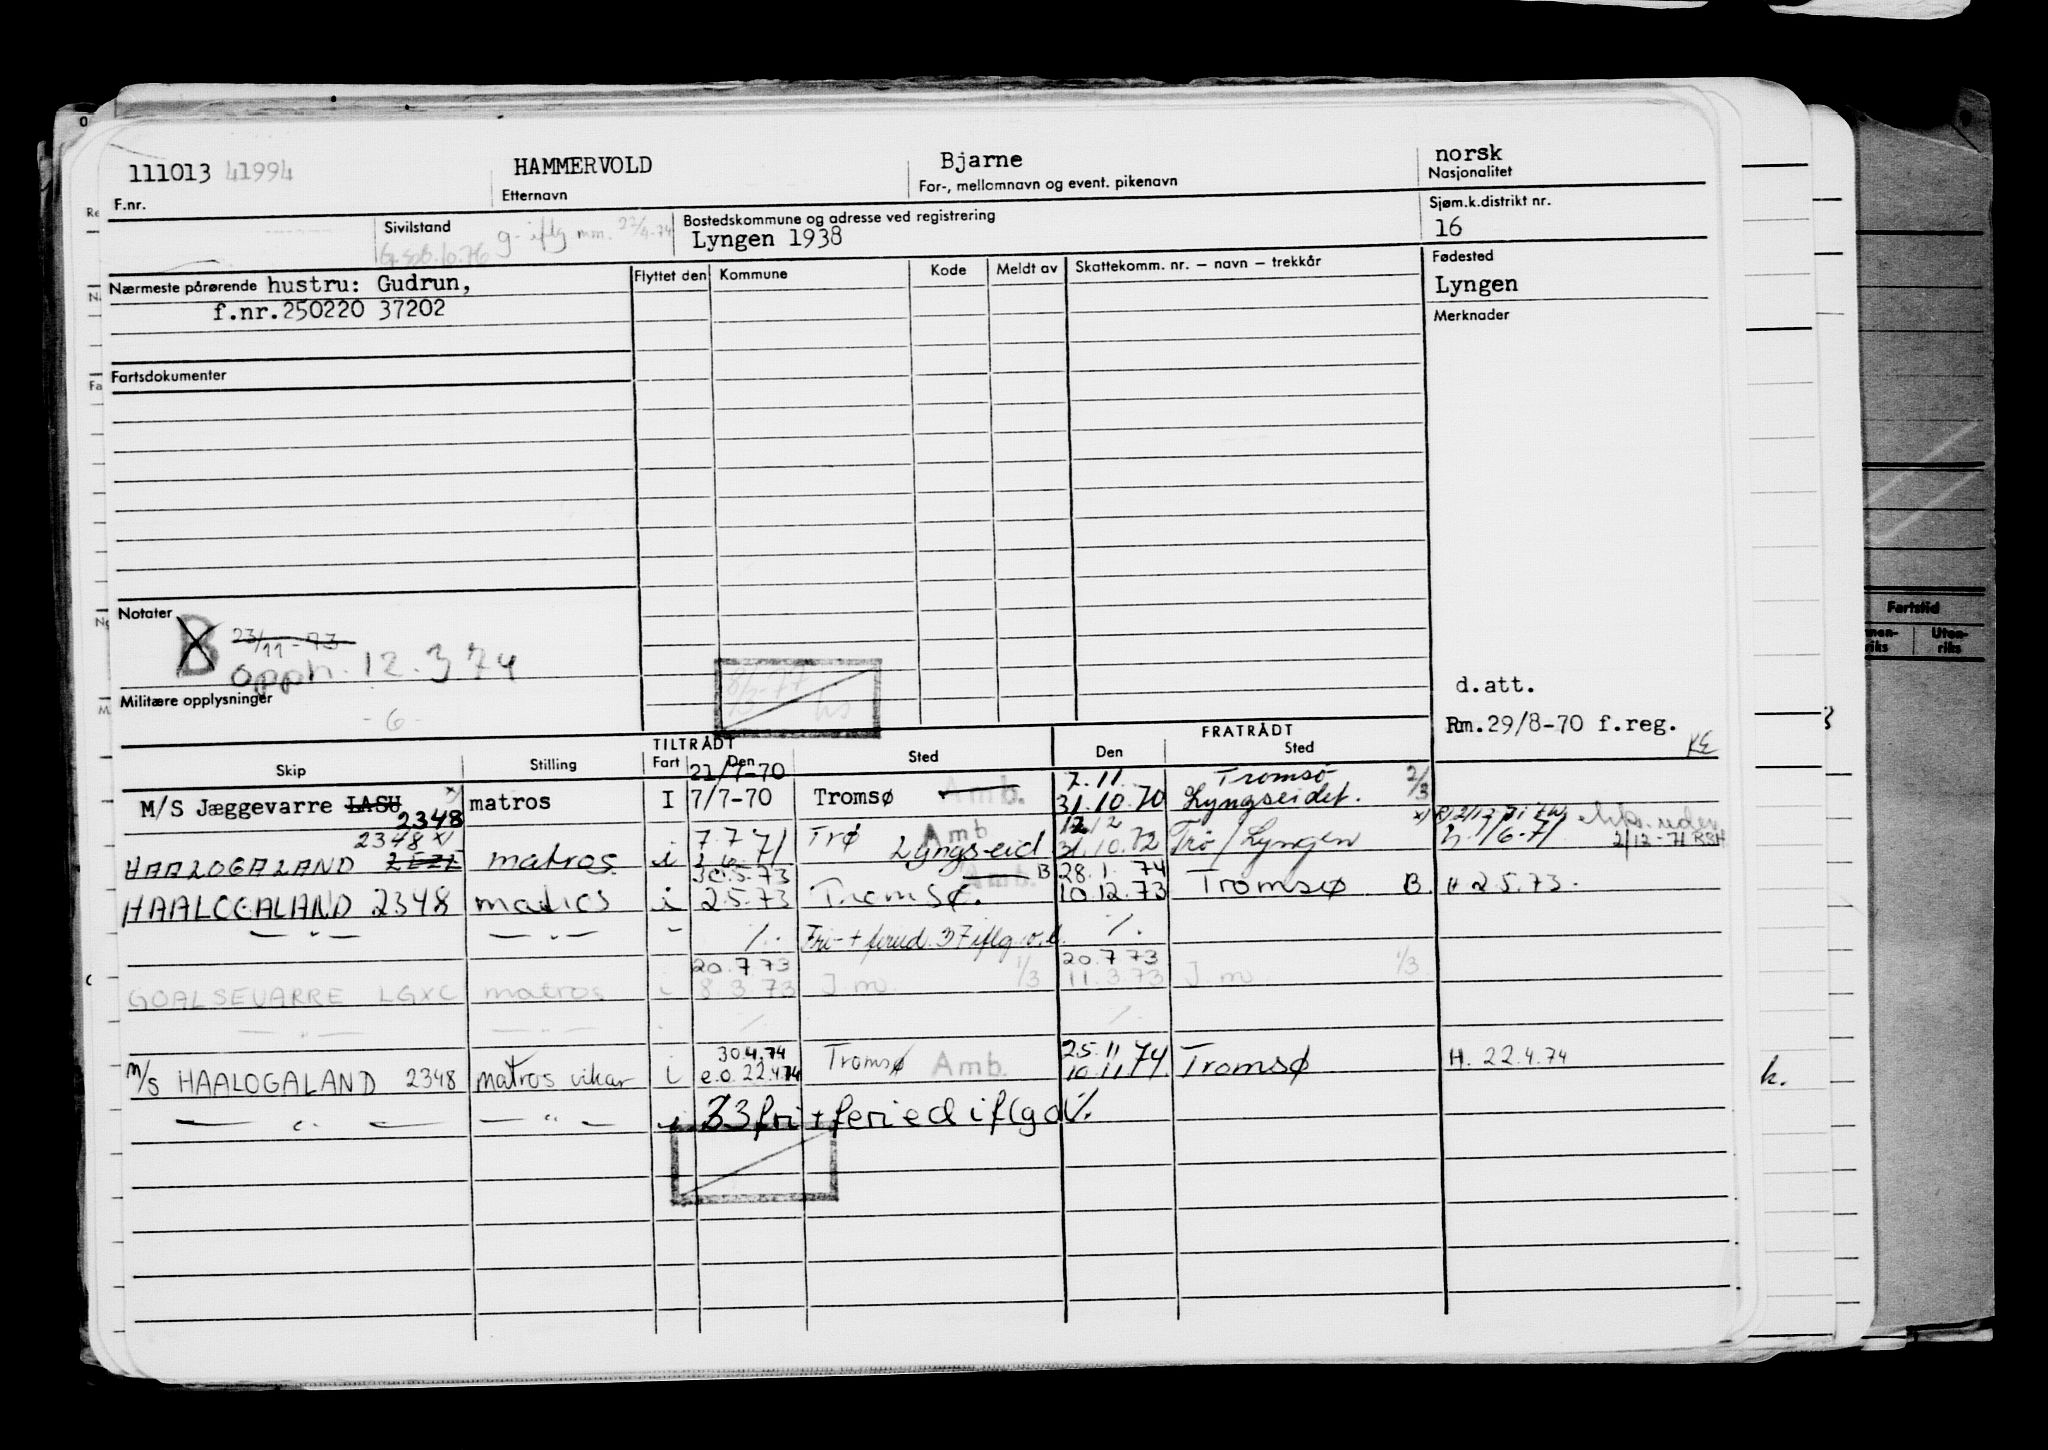 111013 41994
HAMMERVOLD
Bjarne
norsk
F.nr.
Etternavn
For-, mellomnavn og event. pikenavn
Nasjonalitet
Sivilstand
g- iflg mm.
Bostedskommune og adresse ved registrering
Lyngen 1938
Sjøm.k.distrikt nr.
16
Nærmeste pårørende hustru: Gudrun,
f.nr.250220 37202
Flyttet den
Kommune
Kode
Meldt av
Skattekomm. nr. – navn – trekkår
Fødested
Lyngen
Merknader
Fartsdokumenter
Notater
B 23/11-73
opph. 12.3 74
Militære opplysninger
- 6 -
d.att.
Rm.29/8-70 f.reg.
KE
TILTRÅDT
FRATRÅDT
Skip
Stilling
Fart
Den
Sted
Den
Sted
21/7-70
7.11.
Tromsø
2/3
M/S Jæggevarre LASU
2348
matros
I
7/7-70
Tromsø
Amb.
31.10.70
Lyngseidet.
2348 x)
7.7 71
Trø
Amb
HAALOGALAND
matros
i
Lyngseid
31.10.72
Trø / Lyngen
h. 1/6-71
2/12-71 RSH
30.5.73
Amb.
B
28.1.74
HAALOGALAND 2348
matros
i
2.5.73
Tromsø.
10.12.73
Tromsø
B
H 2.5.73.
— " —
— " —
-
%.
Fri- + feried. 37 iflg o.l.
%.
20.7 73
1/3
20.7 73
1/3
GOALSEVARRE LGXC
matros
i
8.3.73
J. m.
11.3.73
J. m.
— " —
— " —
%
%.
30.4.74
Tromsø
Amb.
25.11 74
M/S HAALOGALAND 2348
matros vikar
i
e.o. 22.4.74
10.11.74
Tromsø
H. 22.4.74
— " —
— " —
i
33 fri + feried iflg o.l.
k.
Fartstid
Uten-
riks